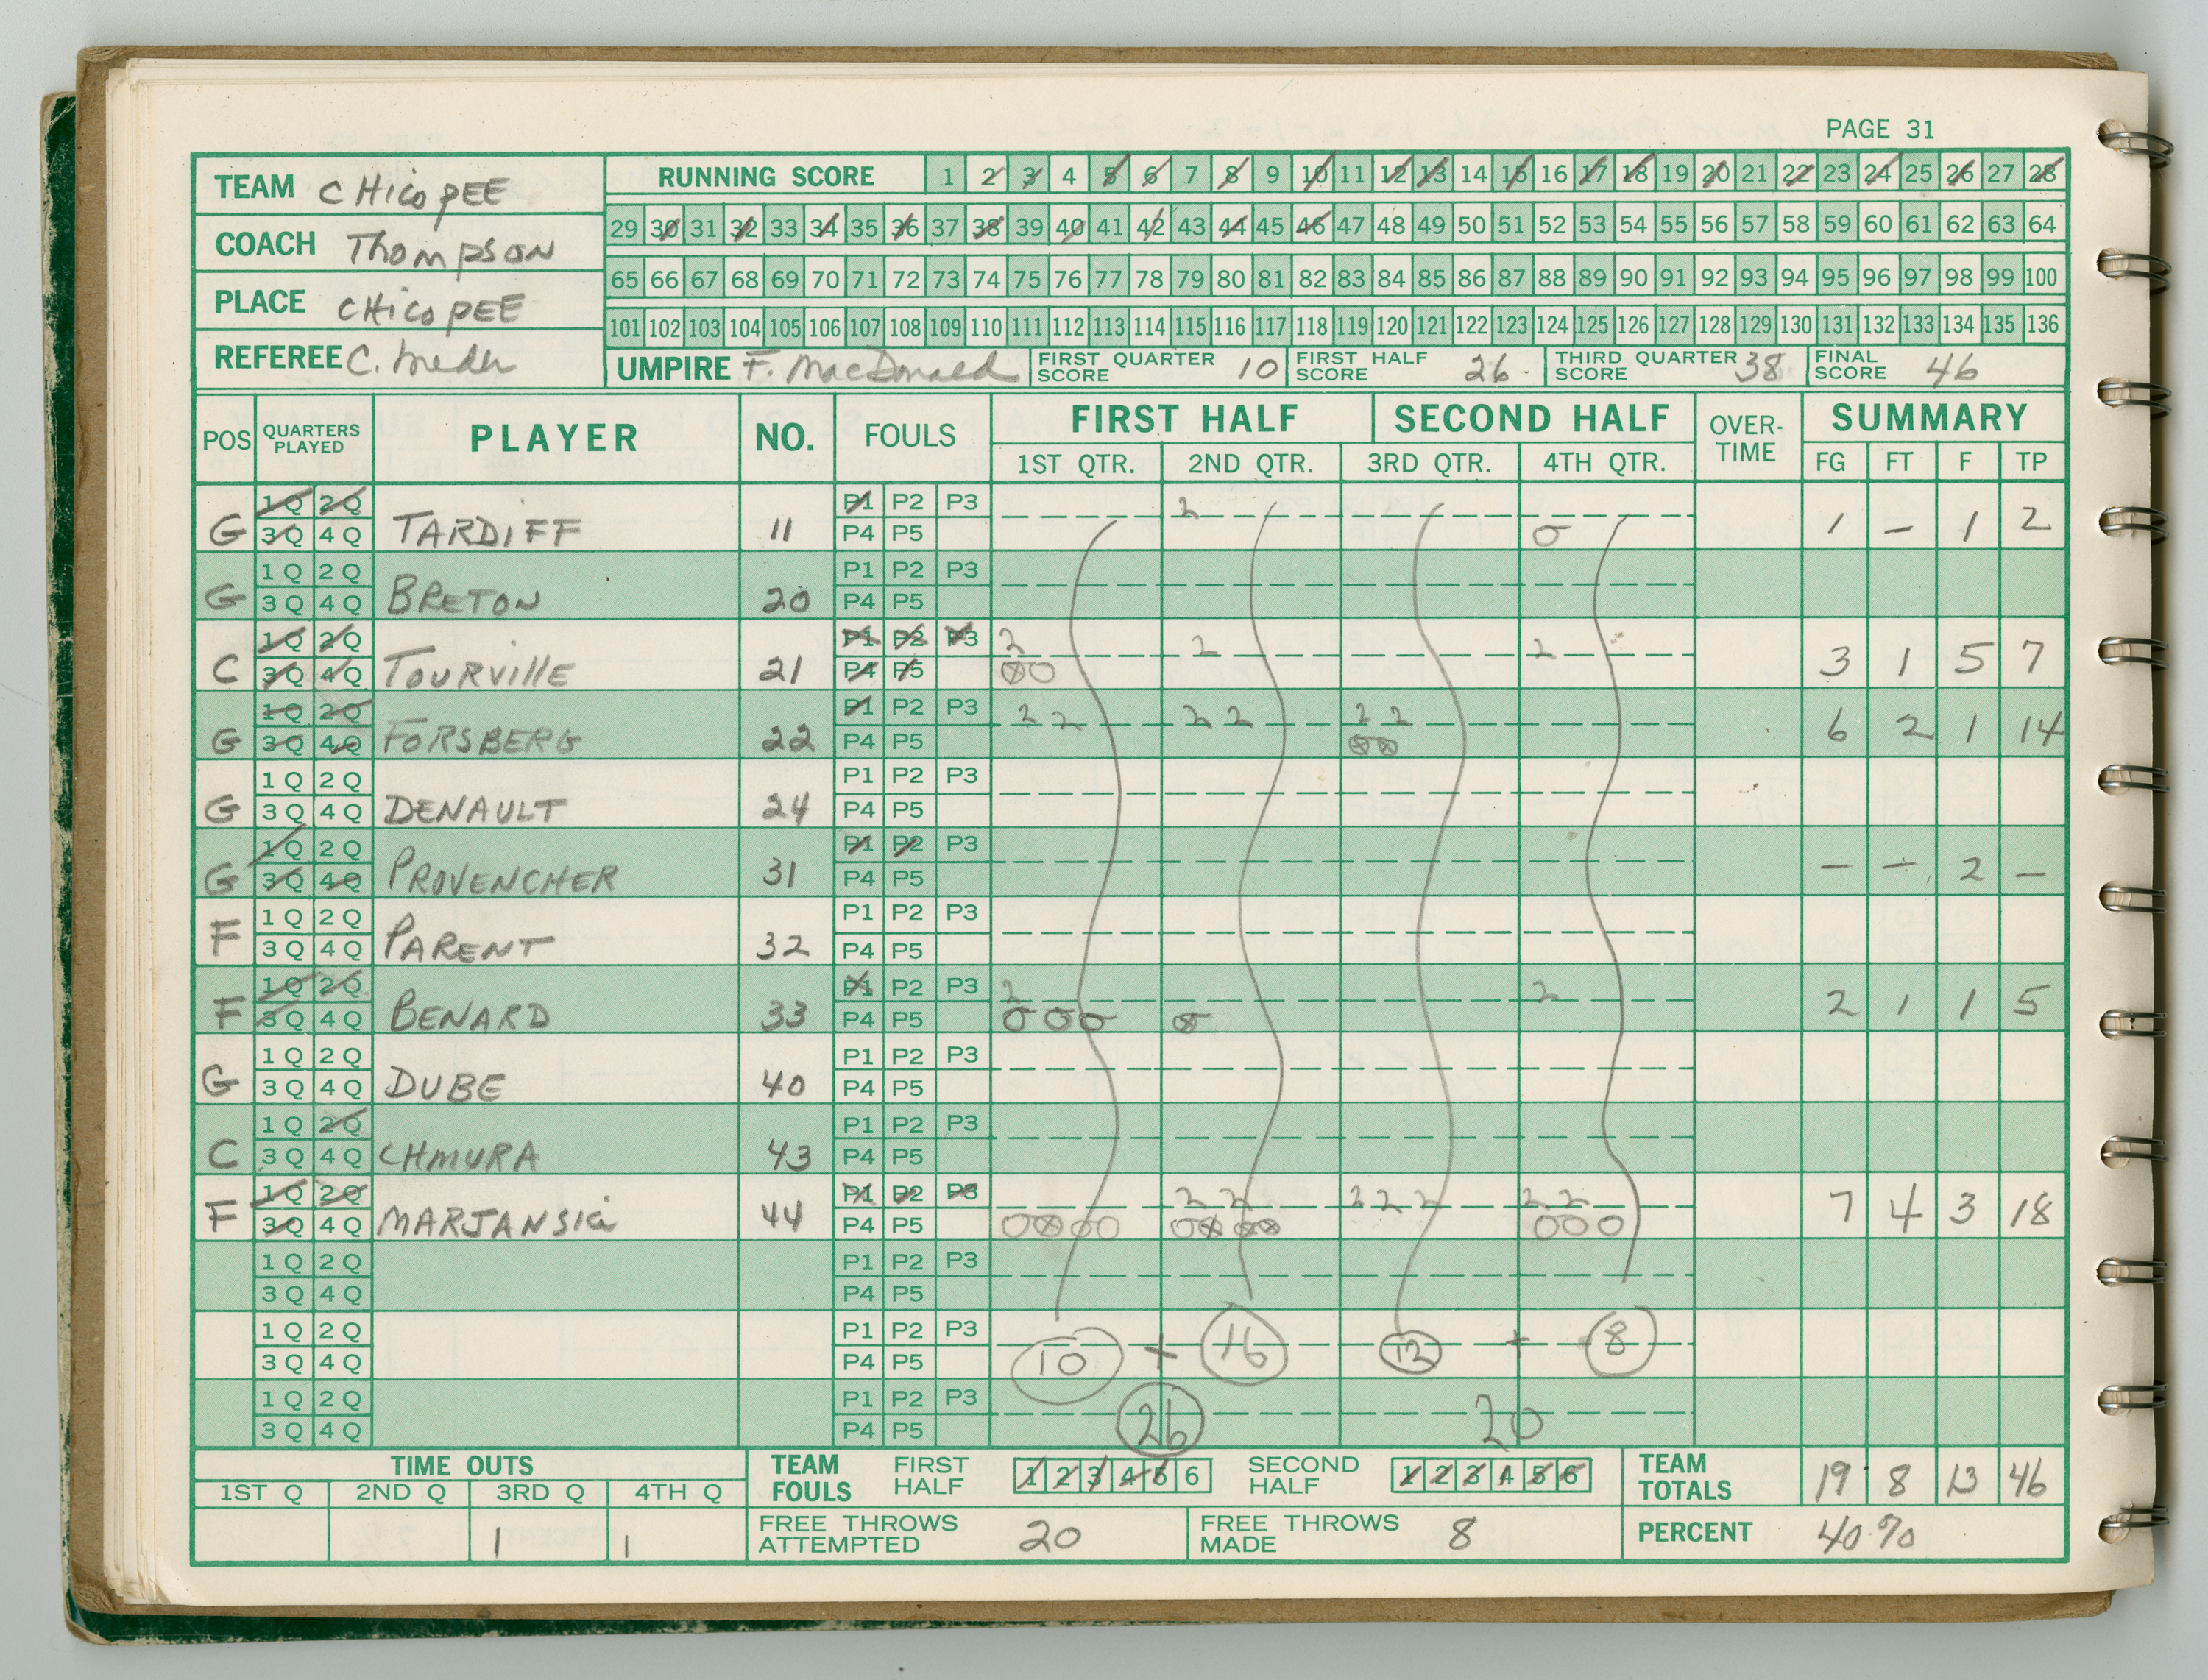 PAGE 31
TEAM CHicopEE
RUNNING SCORE 1 2 3 4 5 6 7 8 9 10 11 12 13 14 15 16 17 18 19 20 21 22 23 24 25 26 27 28
29 30 31 32 33 34 35 36 37 38 39 40 41 42 43 44 45 46 47 48 49 50 51 52 53 54 55 56 57 58 59 60 61 62 63 64
COACH Thompson
65 66 67 68 69 70 71 72 73 74 75 76 77 78 79 80 81 82 83 84 85 86 87 88 89 90 91 92 93 94 95 96 97 98 99 100
PLACE CHicopEE
101 102 103 104 105 106 107 108 109 110 111 112 113 114 115 116 117 118 119 120 121 122 123 124 125 126 127 128 129 130 131 132 133 134 135 136
REFEREE C.
UMPIRE F. MacDonald FIRST QUARTER SCORE 10 FIRST HALF SCORE 26 THIRD QUARTER SCORE 38 FINAL SCORE 46
POS QUARTERS PLAYED PLAYER NO. FOULS FIRST HALF SECOND HALF OVER-TIME SUMMARY
1ST QTR. 2ND QTR. 3RD QTR. 4TH QTR. FG FT F TP
1Q 2Q P1 P2 P3 2
G 3Q 4Q TARDIFF 11 P4 P5 O 1 – 1 2
1Q 2Q P1 P2 P3
G 3Q 4Q BRETON 20 P4 P5
1Q 2Q P1 P2 P3 2 2 2
C 3Q 4Q TOURVIllE 21 P4 P5 ⊗O 3 1 5 7
1Q 2Q P1 P2 P3 2 2 2 2 2 2
G 3Q 4Q FORSBERG 22 P4 P5 ⊗⊗ 6 2 1 14
1Q 2Q P1 P2 P3
G 3Q 4Q DENAULT 24 P4 P5
1Q 2Q P1 P2 P3
G 3Q 4Q PROVENCHER 31 P4 P5 – – 2 –
1Q 2Q P1 P2 P3
F 3Q 4Q PARENT 32 P4 P5
1Q 2Q P1 P2 P3 2 2
F 3Q 4Q BENARD 33 P4 P5 O O O ⊗ 2 1 1 5
1Q 2Q P1 P2 P3
G 3Q 4Q DUBE 40 P4 P5
1Q 2Q P1 P2 P3
C 3Q 4Q CHMURA 43 P4 P5
1Q 2Q P1 P2 P3 2 2 2 2 2 2 2
F 3Q 4Q MARJANSKi 44 P4 P5 O⊗OO O⊗⊗⊗ OOO 7 4 3 18
1Q 2Q P1 P2 P3
3Q 4Q P4 P5
1Q 2Q P1 P2 P3
3Q 4Q P4 P5 10 + 16 12 + 8
1Q 2Q P1 P2 P3
3Q 4Q P4 P5 26 20
TIME OUTS TEAM FOULS FIRST HALF 1 2 3 4 5 6 SECOND HALF 1 2 3 4 5 6 TEAM TOTALS 19 8 13 46
1ST Q 2ND Q 3RD Q 4TH Q
1 1 FREE THROWS ATTEMPTED 20 FREE THROWS MADE 8 PERCENT 40%